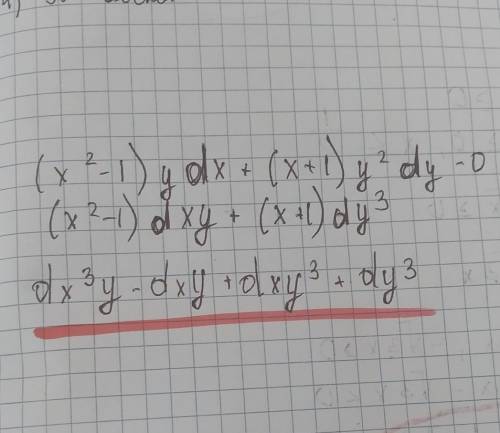 (x² - 1) y dx + (x + 1) y² dy - 0
(x² - 1) dxy + (x + 1) dy³
dx³y - dxy + dxy³ + dy³